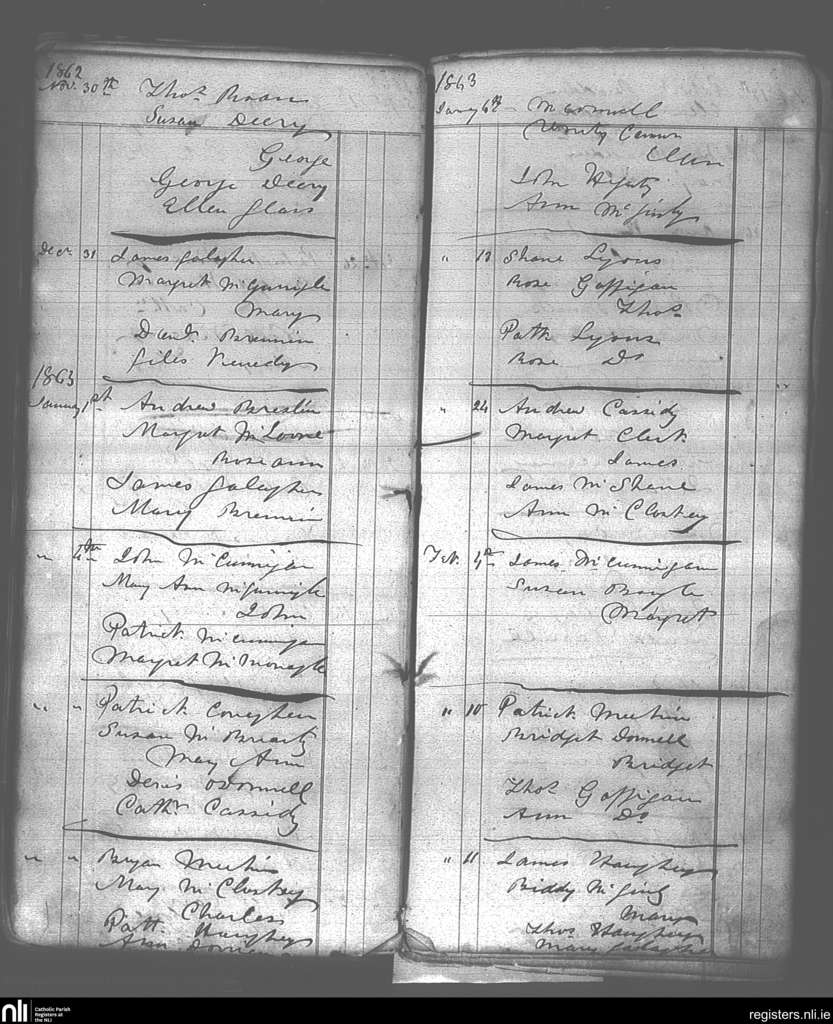 1862
Nov. 30th Thos. Roan
Susan Deery
George
George Deery
Ellen Glass
Decr 31 James Galagher
Margret McGarrigle
Mary
Danl. Bremin
Giles Kenedy
1863
January 1st Andrew Breslin
Margret McLoone
Rose ann
James Galagher
Mary Bremin
" 4th John McCunnigan
Mary Ann McGarrigle
John
Patrick McCunnigan
Margret McMonagle
" " Patrick Conaghan
Susan McBrearty
Mary Ann
Denis ODonnell
Cathr. Cassidy
" " Bryan Meehin
Mary McCloskey
Charless
Patt. Haughey
Ann
1863
Jany 6th Mc
Ellen
John
Ann McGinty
" 18 Shane Lyons
Rose Gaffigan
Thos.
Patk Lyons
Rose Do
" 24 Andrew Cassidy
Margret Clark
James
James McShane
Ann McCloskey
Feb. 4th James McCunnigan
Susan Boyle
Margret
" 10 Patrick Meehin
Bridget Donnell
Bridget
Thos. Gaffigan
Ann Do
" 11 James Haughey
Biddy McGinly
Mary
Thos Haughey
Mary Galagher
nli
Catholic Parish
Registers at
the NLI
registers.nli.ie